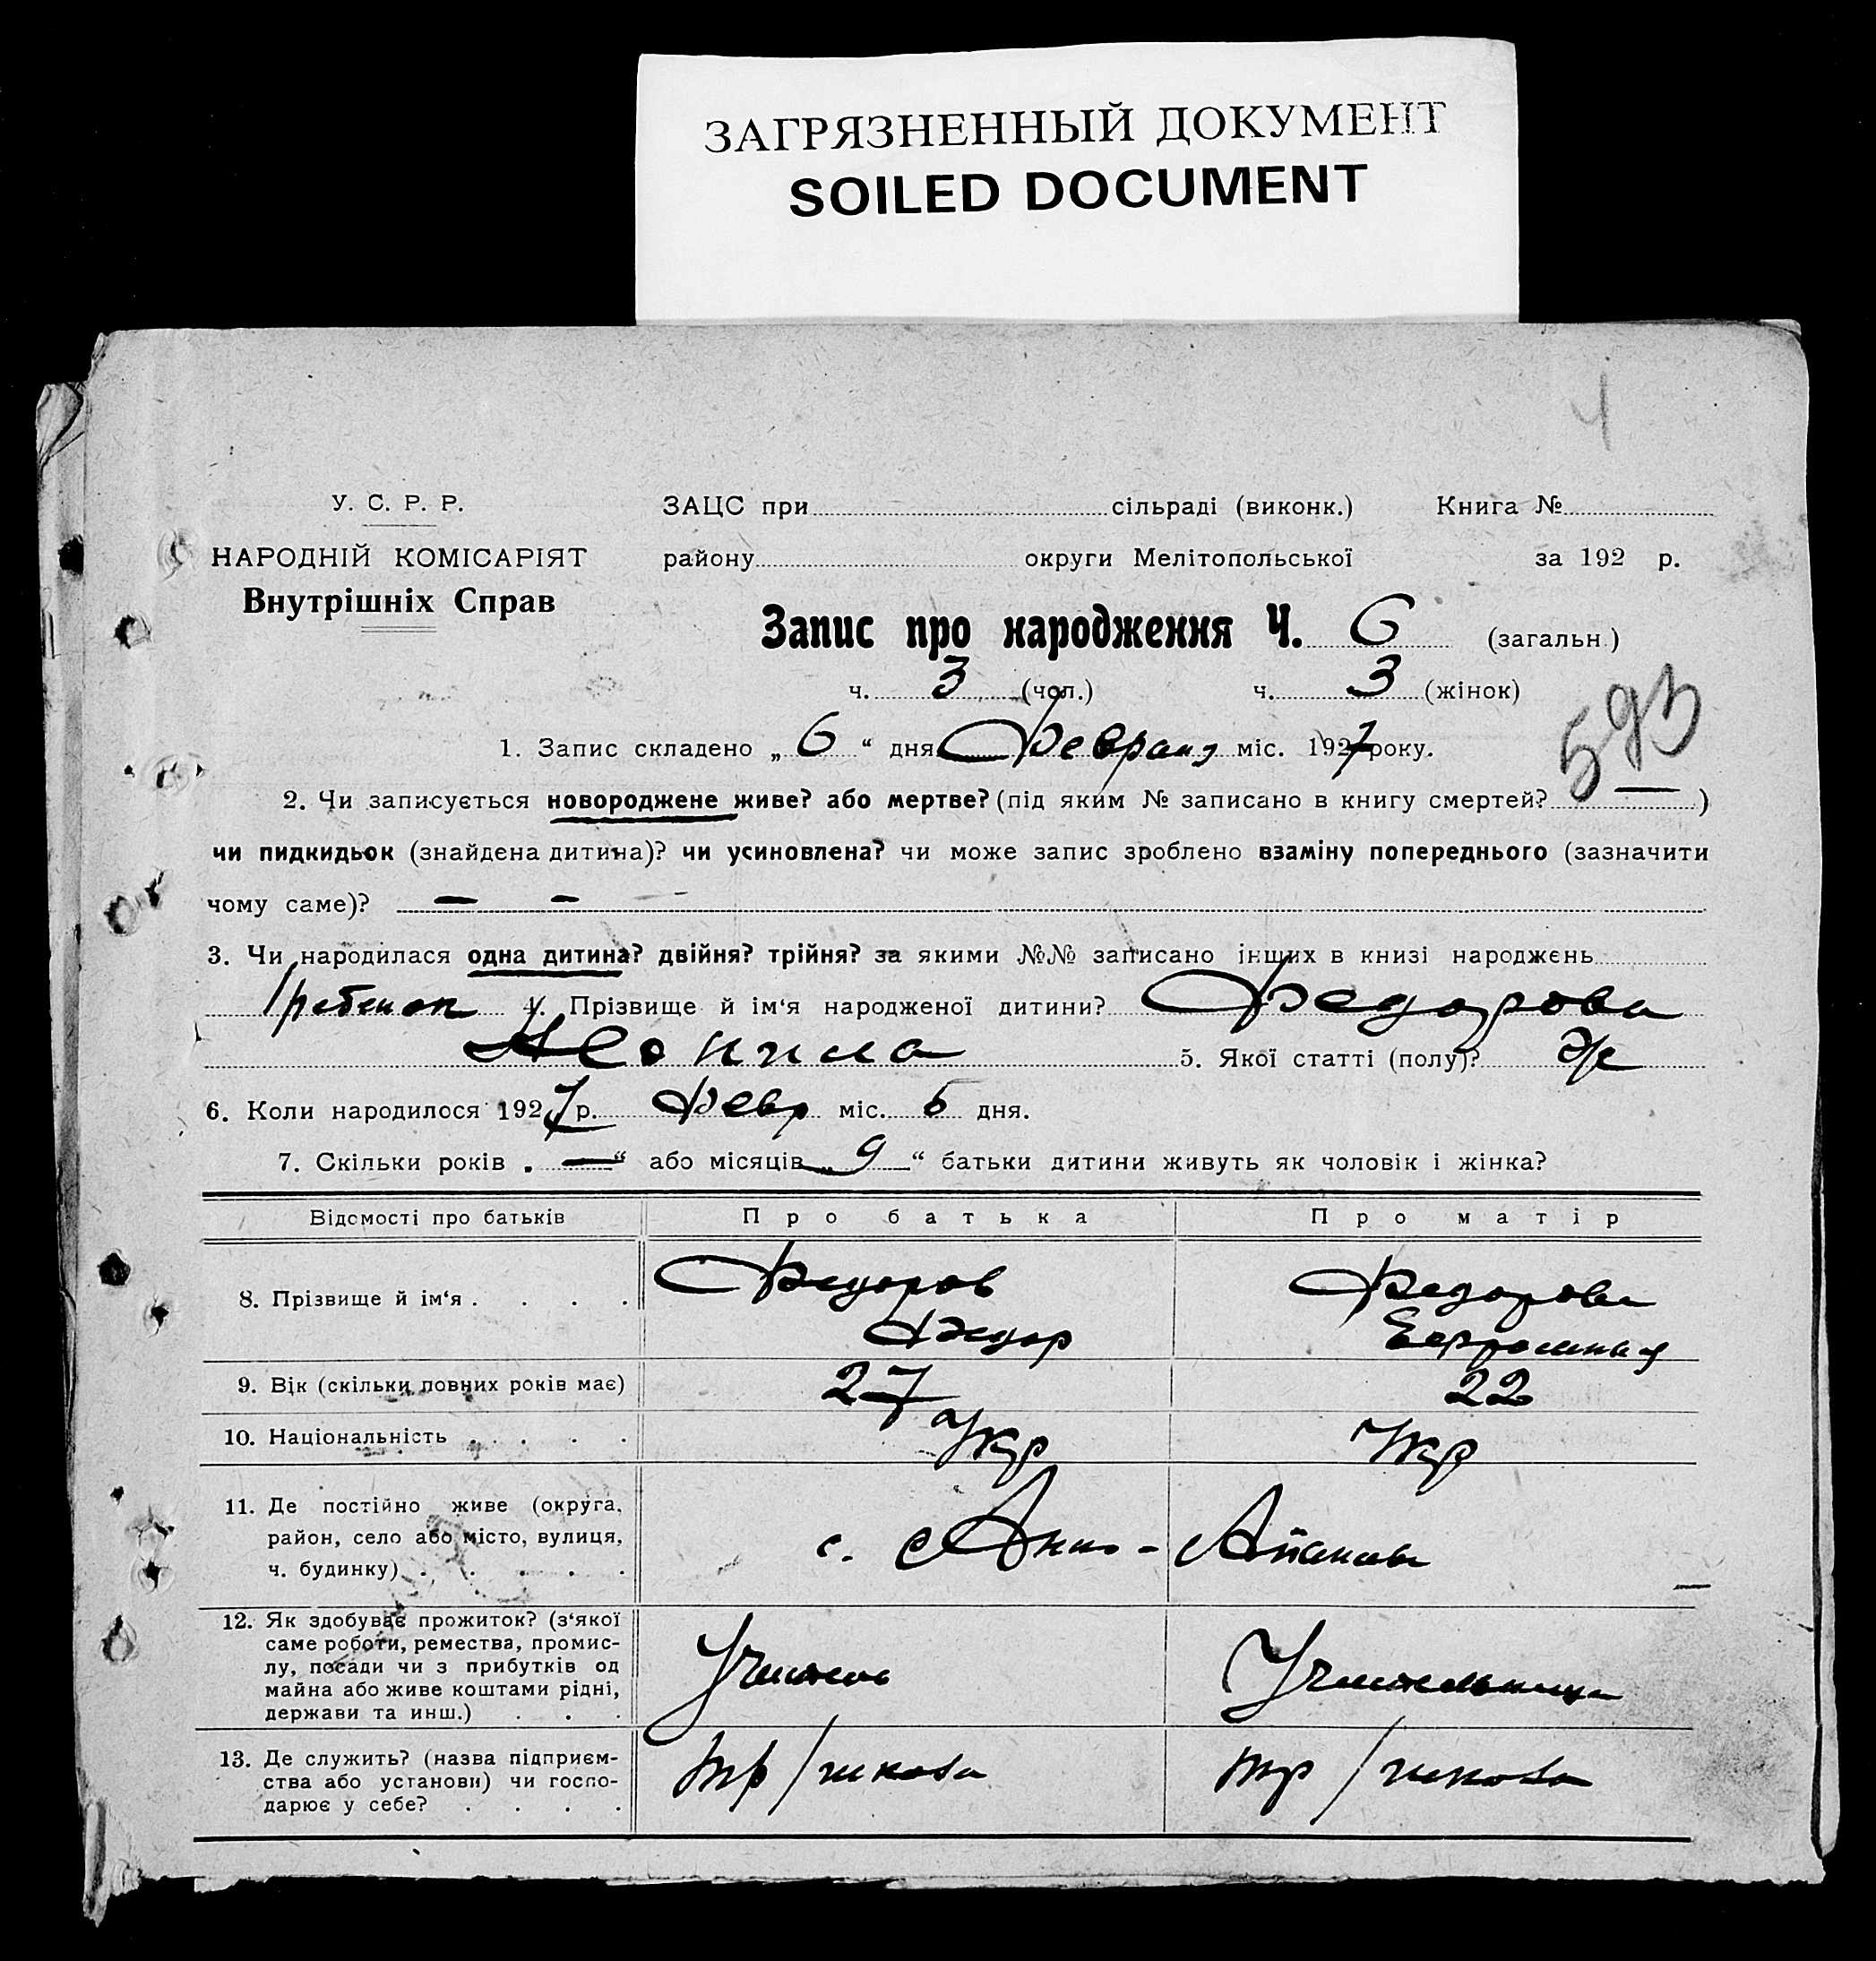 ЗАГРЯЗНЕННЫЙ ДОКУМЕНТ
SOILED DOCUMENT
4
У. С. Р. Р.
НАРОДНІЙ КОМІСАРІЯТ
Внутрішніх Справ
ЗАЦС при сільраді (виконк.) Книга №
району округи Мелітопольської за 192 р.
Запис про народження Ч. 6 (загальн.)
ч. 3 (чол.) ч. 3 (жінок)
593
1. Запис складено „ 6 “ дня Февраля міс. 1927 року.
2. Чи записується новороджене живе? або мертве? (під яким № записано в книгу смертей? — )
чи пидкидьок (знайдена дитина)? чи усиновлена? чи може запис зроблено взаміну попереднього (зазначити
чому саме)? — –
3. Чи народилася одна дитина? двійня? трійня? за якими №№ записано інщих в книзі народжень
1 ребенок 4. Прізвище й ім‘я народженої дитини? Федорова
5. Якої статті (полу)? Ж
6. Коли народилося 1927 р. Февр міс. 5 дня.
7. Скільки років „ — “ або місяців „ 9 “ батьки дитини живуть як чоловік і жінка?
Відомості про батьків Про батька Про матір
8. Прізвище й ім‘я . . . . Федоров Федор Федорова Евросинья
9. Вік (скільки повних років має) 27 22
10. Національність . . . . . Укр Укр
11. Де постійно живе (округа,
район, село або місто, вулиця,
ч. будинку) . . . . .
с. Анно-
12. Як здобуває прожиток? (з‘якої
саме роботи, ремества, промис-
лу, посади чи з прибутків од
майна або живе коштами рідні,
держави та инш.) . . .
Учитель Учительница
13. Де служить? (назва підприєм-
ства або установи) чи госпо-
дарює у себе? . . . .
тр/школа тр/школа